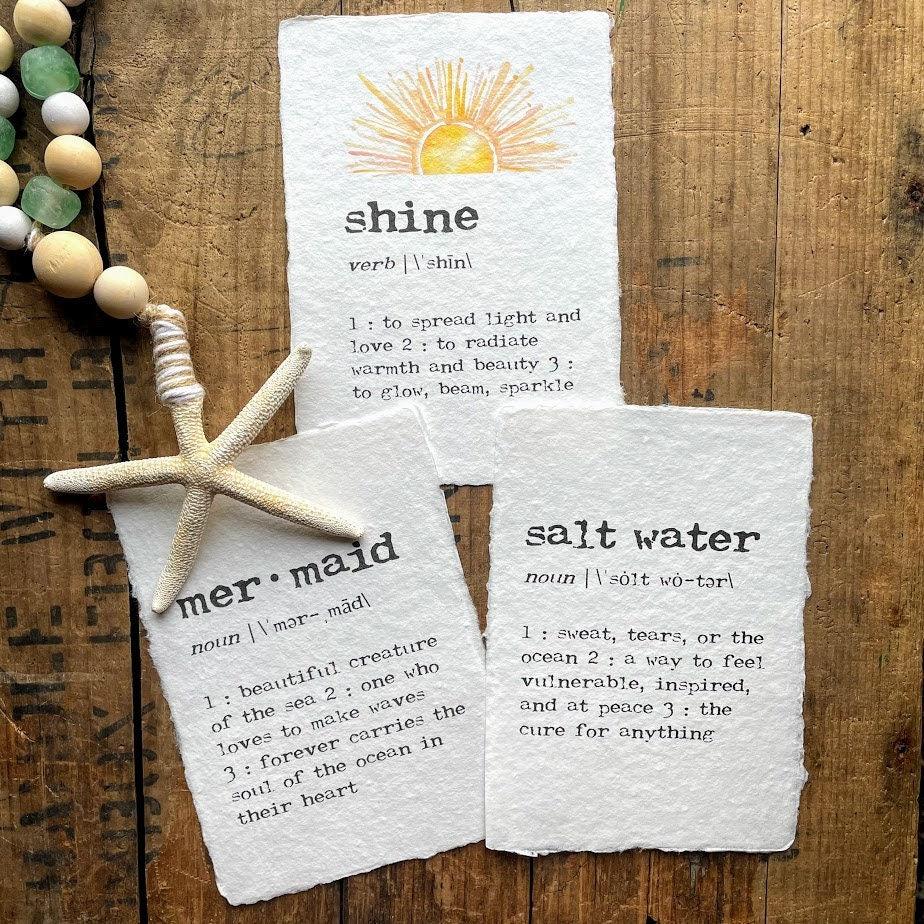 shine
verb |\ˈshīn\
1 : to spread light and
love 2 : to radiate
warmth and beauty 3 :
to glow, beam, sparkle
mer·maid
noun |\ˈmər-ˌmād\
1 : beautiful creature
of the sea 2 : one who
loves to make waves
3 : forever carries the
soul of the ocean in
their heart
salt water
noun |\ˈsȯlt wȯ-tər\
1 : sweat, tears, or the
ocean 2 : a way to feel
vulnerable, inspired,
and at peace 3 : the
cure for anything